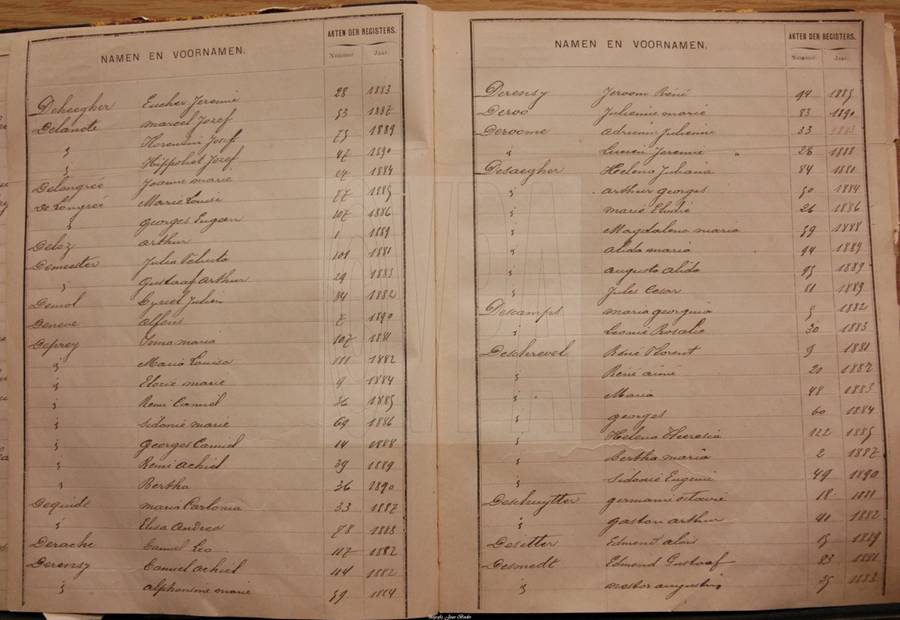 NAMEN EN VOORNAMEN.
AKTEN DER REGISTERS.
Nummer. Jaar.
Deheegher Eucher Jeremie 28 1883
Delanote Marcel Jozef 53 1887
" Jozef 75 1889
" Hippoliet Jozef 47 1890
Delangrée Joanna Marie 1884
De Langrée Marie Louise 87 1885
" Georges Eugeen 107 1886
Delez Arthur 1 1889
Demeester Julia 101 1881
" Gustaaf Arthur 29 1883
Demol Cyriel Julien 84 1882
Deneve Alfons 7 1890
Deprey Irma Maria 107 1881
" Maria Louisa 111 1882
" Elodie Marie 9 1884
" Remi Camiel 36 1885
" Sidonie Marie 69 1886
" Georges Camiel 14 1888
" Remi Achiel 39 1889
" Bertha 36 1890
Dequidt Maria Carlonia 33 1887
" Elisa Andrea 78 1883
Derache Camiel Leo 117 1882
Derensy Camiel Achiel 114 1882
" Alphonsine Marie 59 1884
NAMEN EN VOORNAMEN.
AKTEN DER REGISTERS.
Nummer. Jaar.
Derensy Jeroom René 94 1885
Deroo Julienne Marie 83 1890
Deroome Adrien Julienne 33 1883
" Lucien Jeremie 28 1888
Desaegher Helena Juliana 84 1881
" Arthur Georges 50 1884
" Marie Elodie 26 1886
" Magdalena Maria 59 1888
" Alida Maria 94 1889
" Augusta Alida 95 1889
" Jules Cesar 81 1889
Descamps Maria Georgina 5 1882
" Leonie Rosalie 30 1883
Deschrevel René Florent 9 1881
" René Aimé 20 1882
" Maria 48 1883
" Georges 60 1884
" Helena Theresia 122 1885
" Bertha Maria 2 1887
" Sidonie Eugenie 49 1890
Deschuytter Germanie Octavie 18 1881
" Gaston Arthur 40 1882
Desitter Edmond Alois 15 1889
Desmedt Edmond Gustaaf 23 1881
" Nestor Augustin 35 1883